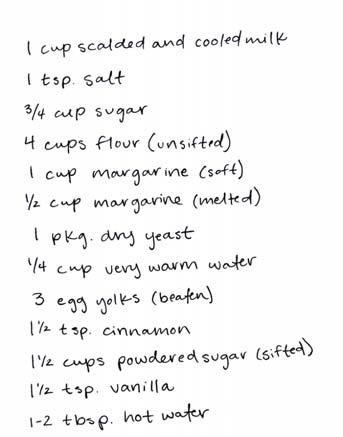 1 cup scalded and cooled milk
1 tsp. salt
3/4 cup sugar
4 cups flour (unsifted)
1 cup margarine (soft)
1/2 cup margarine (melted)
1 pkg. dry yeast
1/4 cup very warm water
3 egg yolks (beaten)
1 1/2 tsp. cinnamon
1 1/2 cups powdered sugar (sifted)
1 1/2 tsp. vanilla
1-2 tbsp. hot water